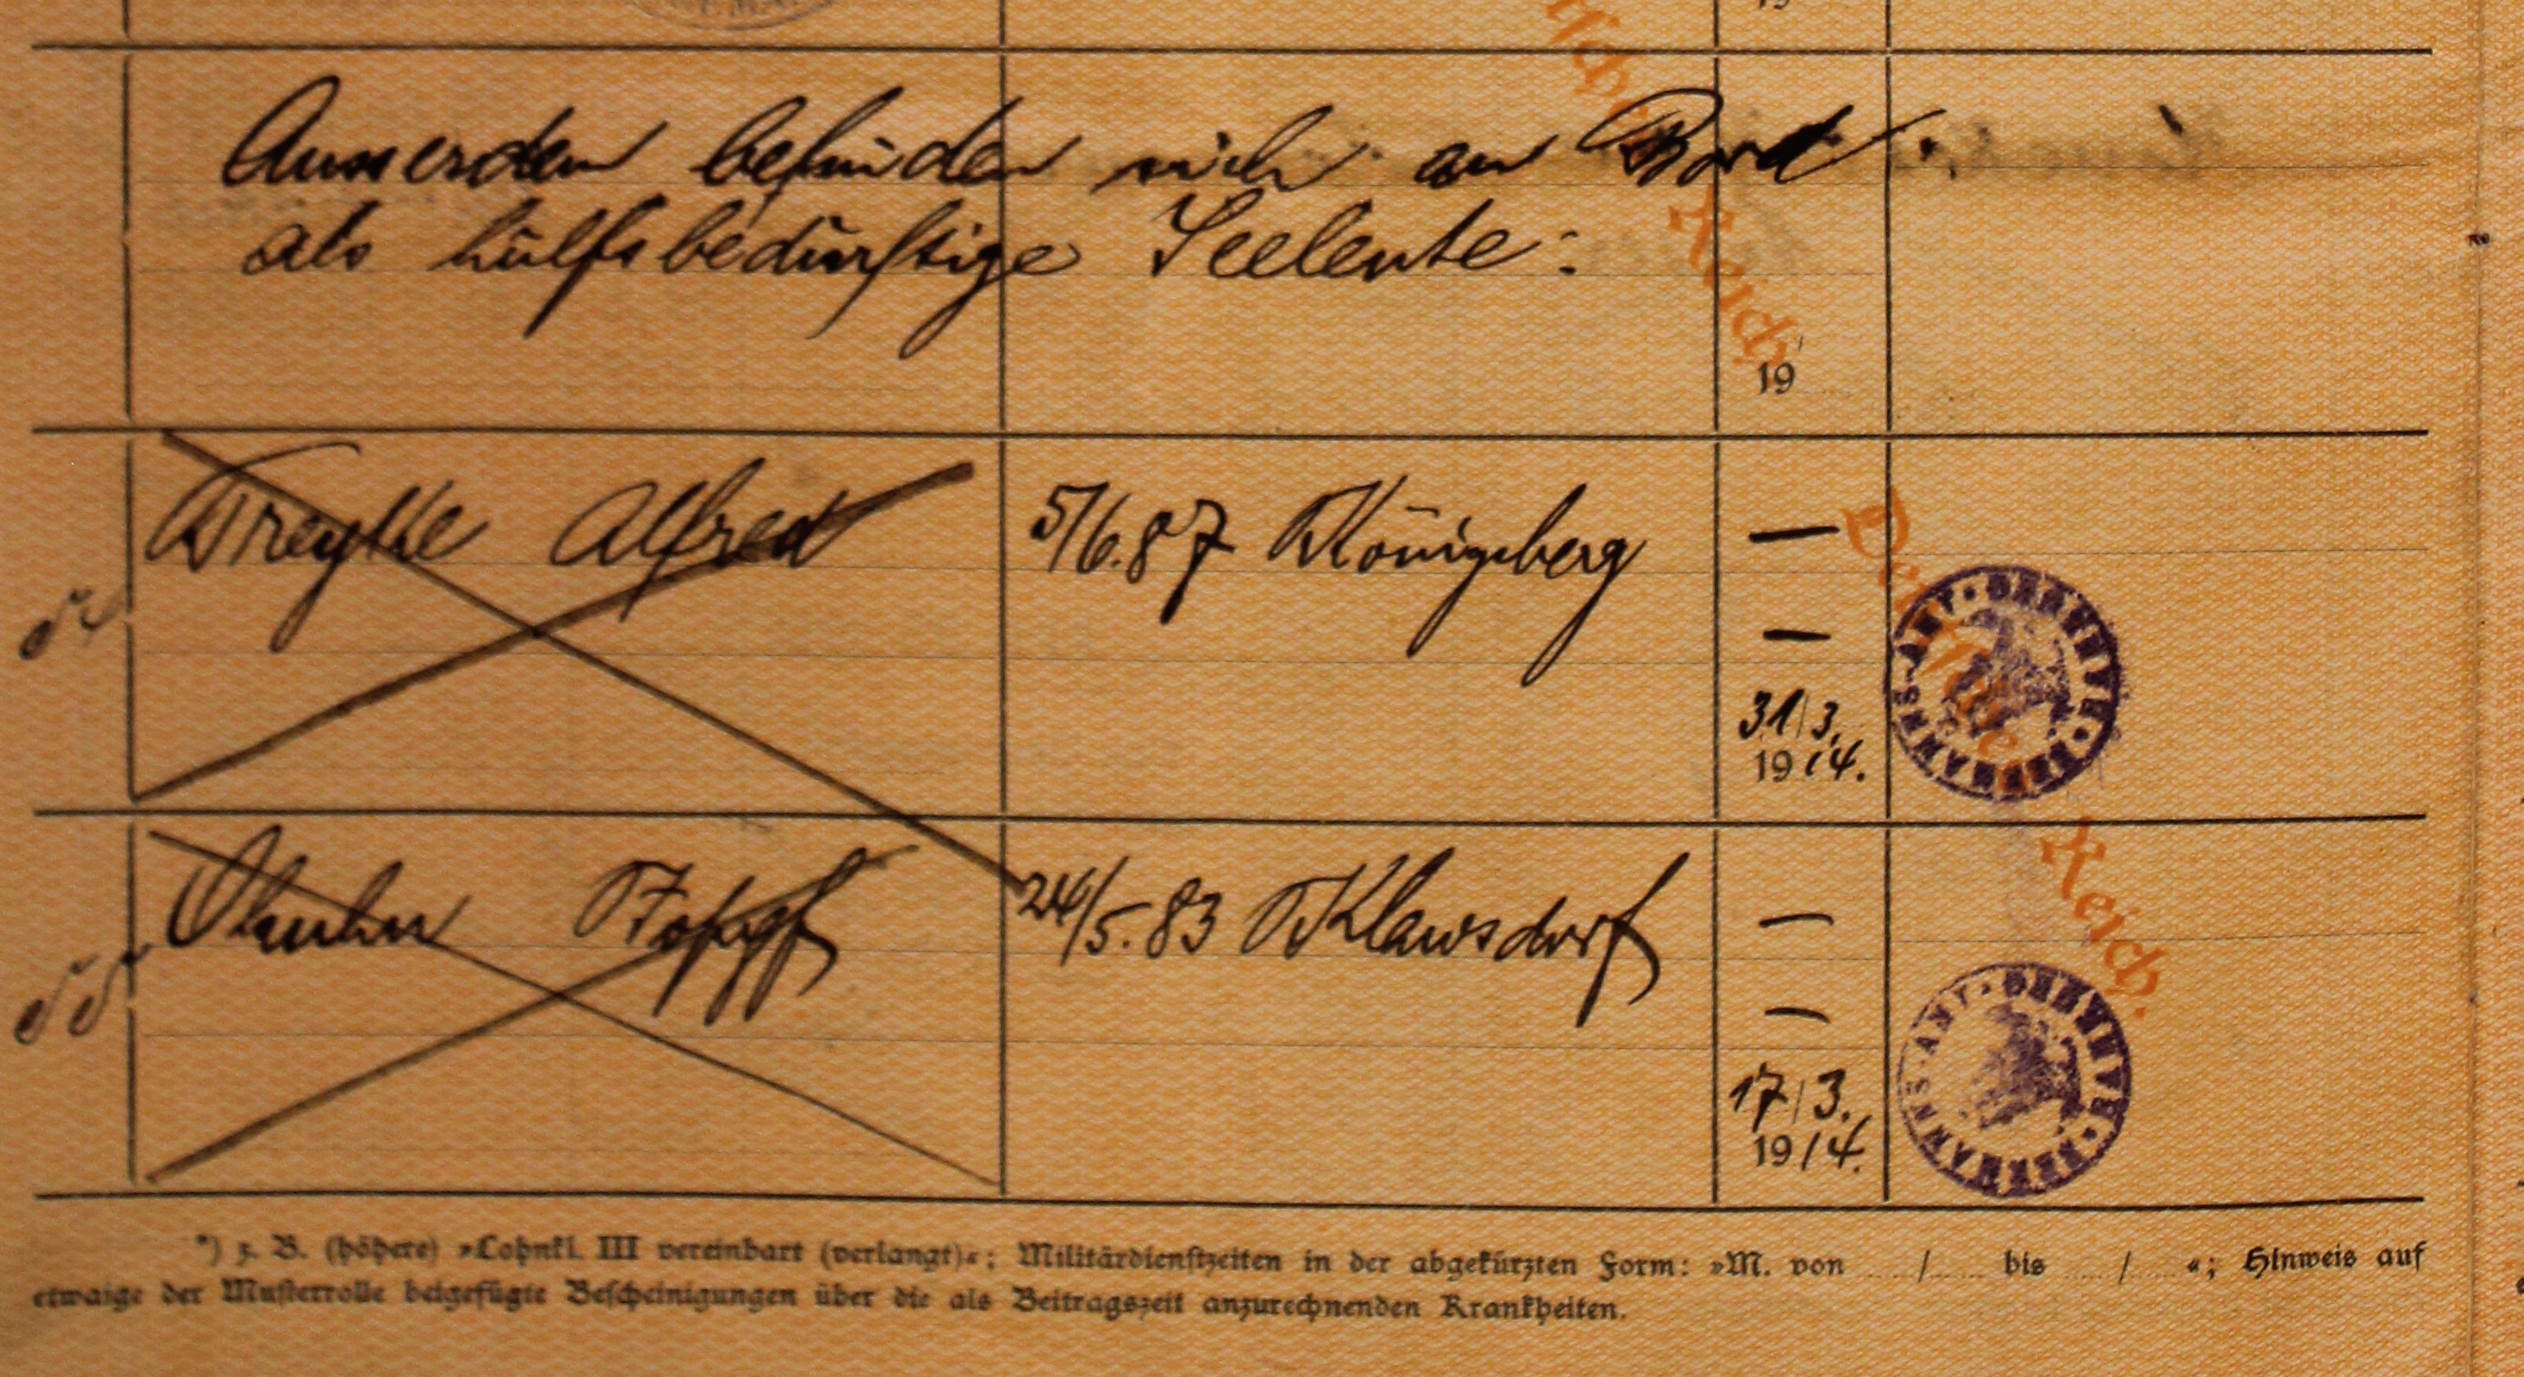 19
Ausserdem befinden sich an Bord.
als hülfsbedürftige Seeleute:
19
Alfred 5/6.87 Königsberg —
—
31/3.
1914.
24/5.83 Klawsdorf —
—
17/3.
1914.
Deutsches Reich
SEEMANNS-AMT
SEEMANNS-AMT
*) z. B. (höhere) »Lohnkl. III vereinbart (verlangt)«; Militärdienstzeiten in der abgekürzten Form: »M. von / bis / «; Hinweis auf
etwaige der Musterrolle beigefügte Bescheinigungen über die als Beitragszeit anzurechnenden Krankheiten.